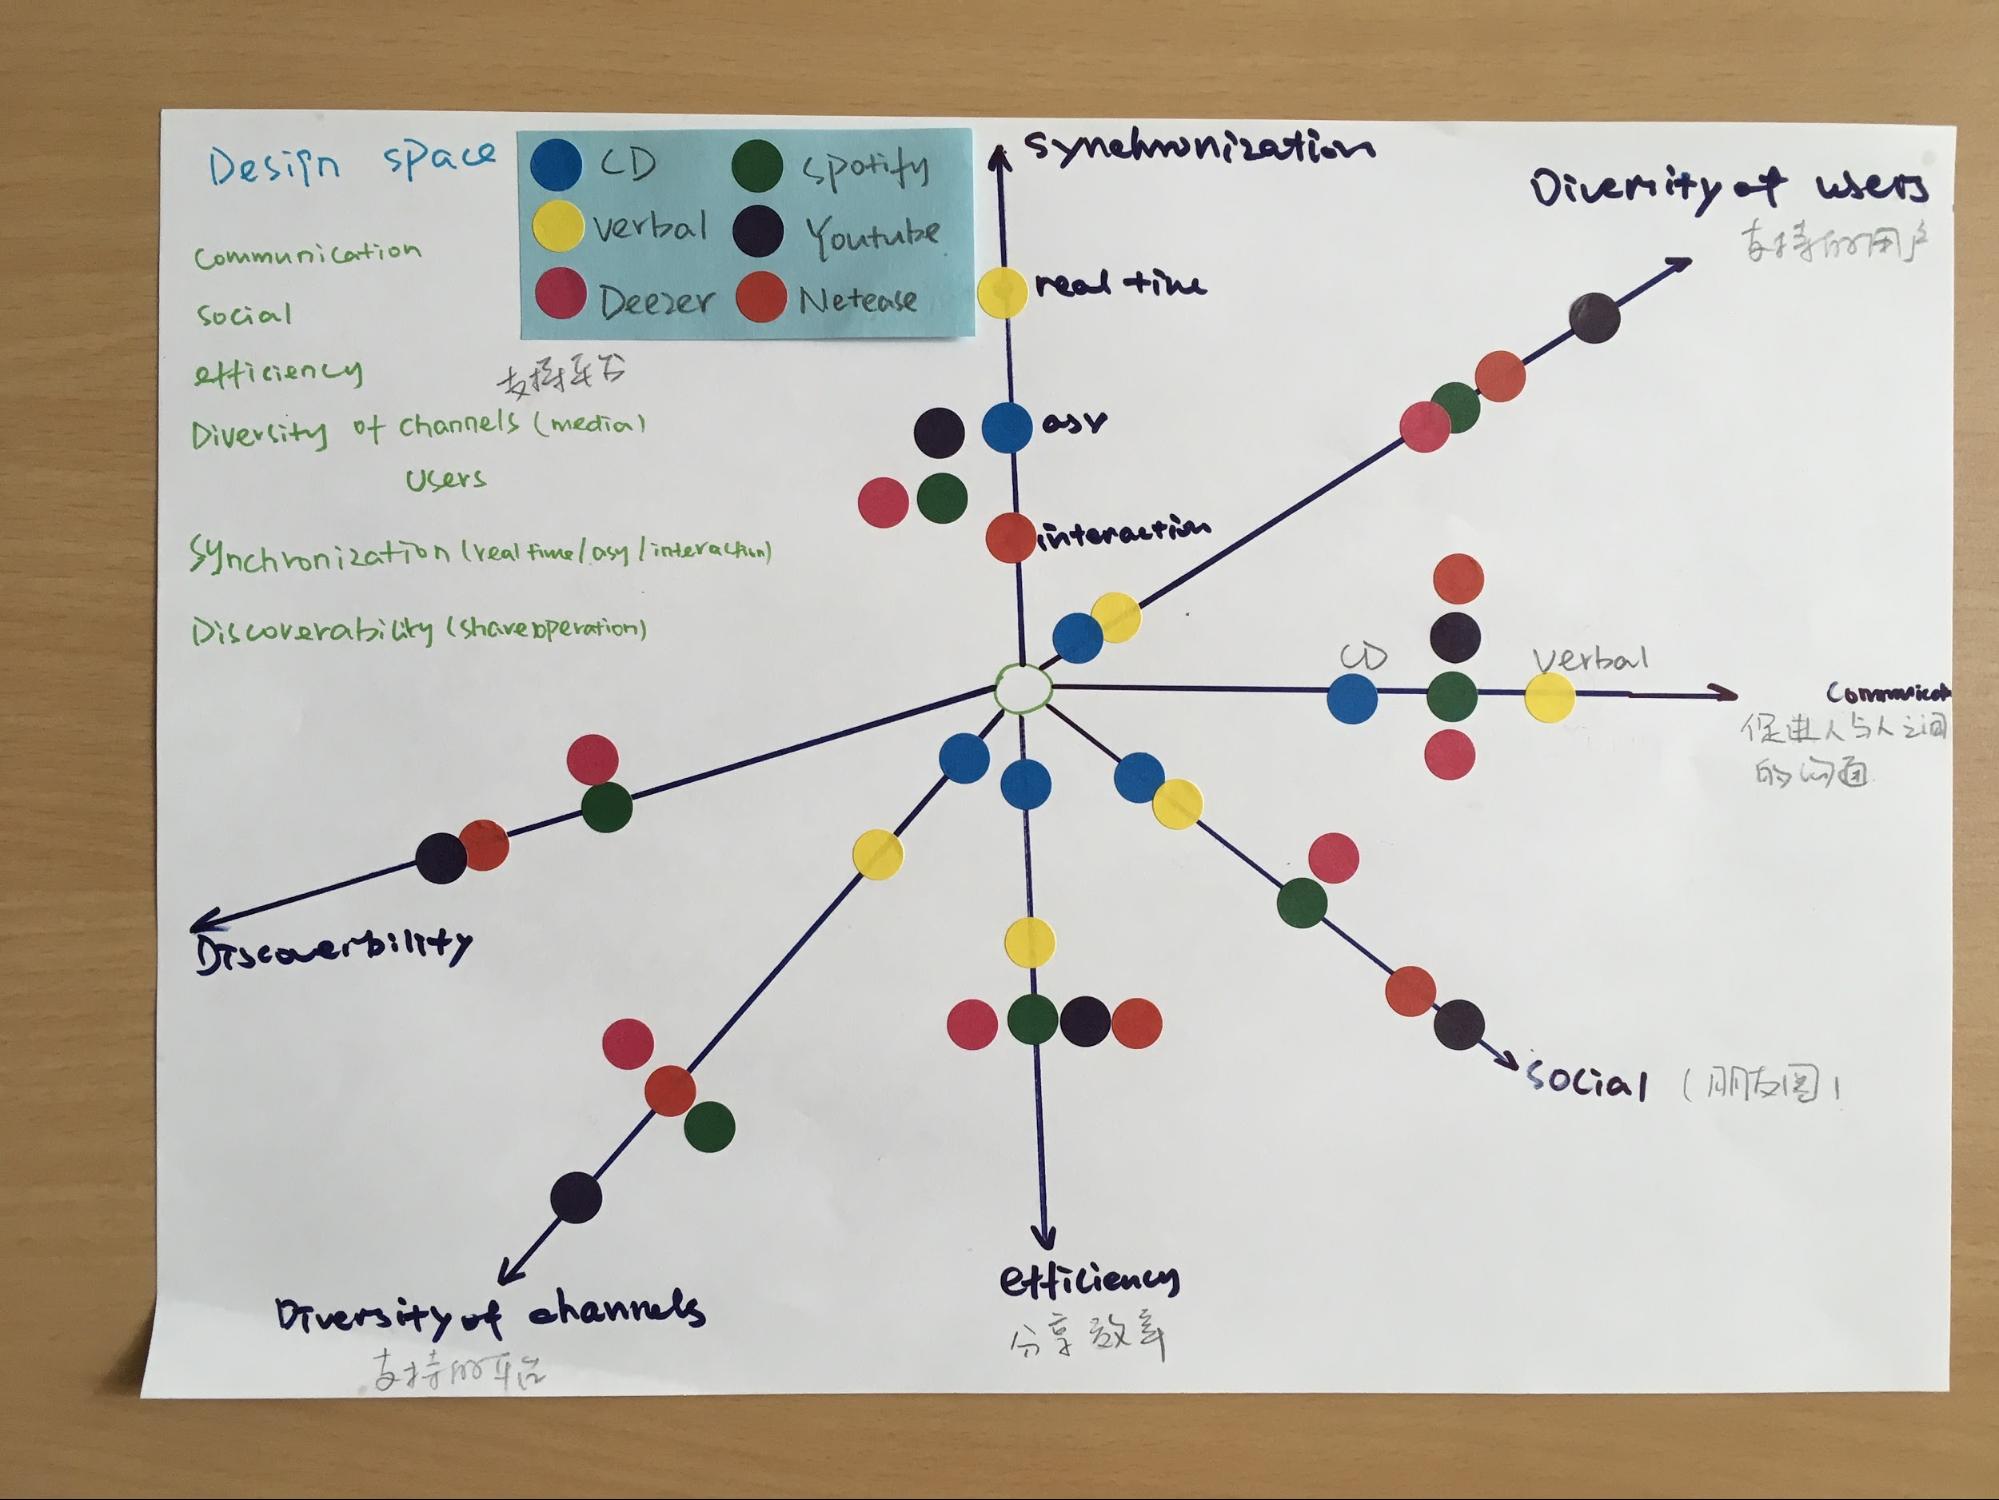 Design space
CD
Spotify
Verbal
Youtube
Deezer
Netease
Communication
social
efficiency
支持平台
Diversity of channels (media)
Users
Synchronization (real time/asy/interaction)
Discoverability (share operation)
Synchronization
real time
asy
interaction
Diversity of users
支持的用户
CD
Verbal
Communicat
促进人与人之间
的沟通
social (朋友圈)
efficiency
分享效率
Diversity of channels
支持的平台
Discoverbility